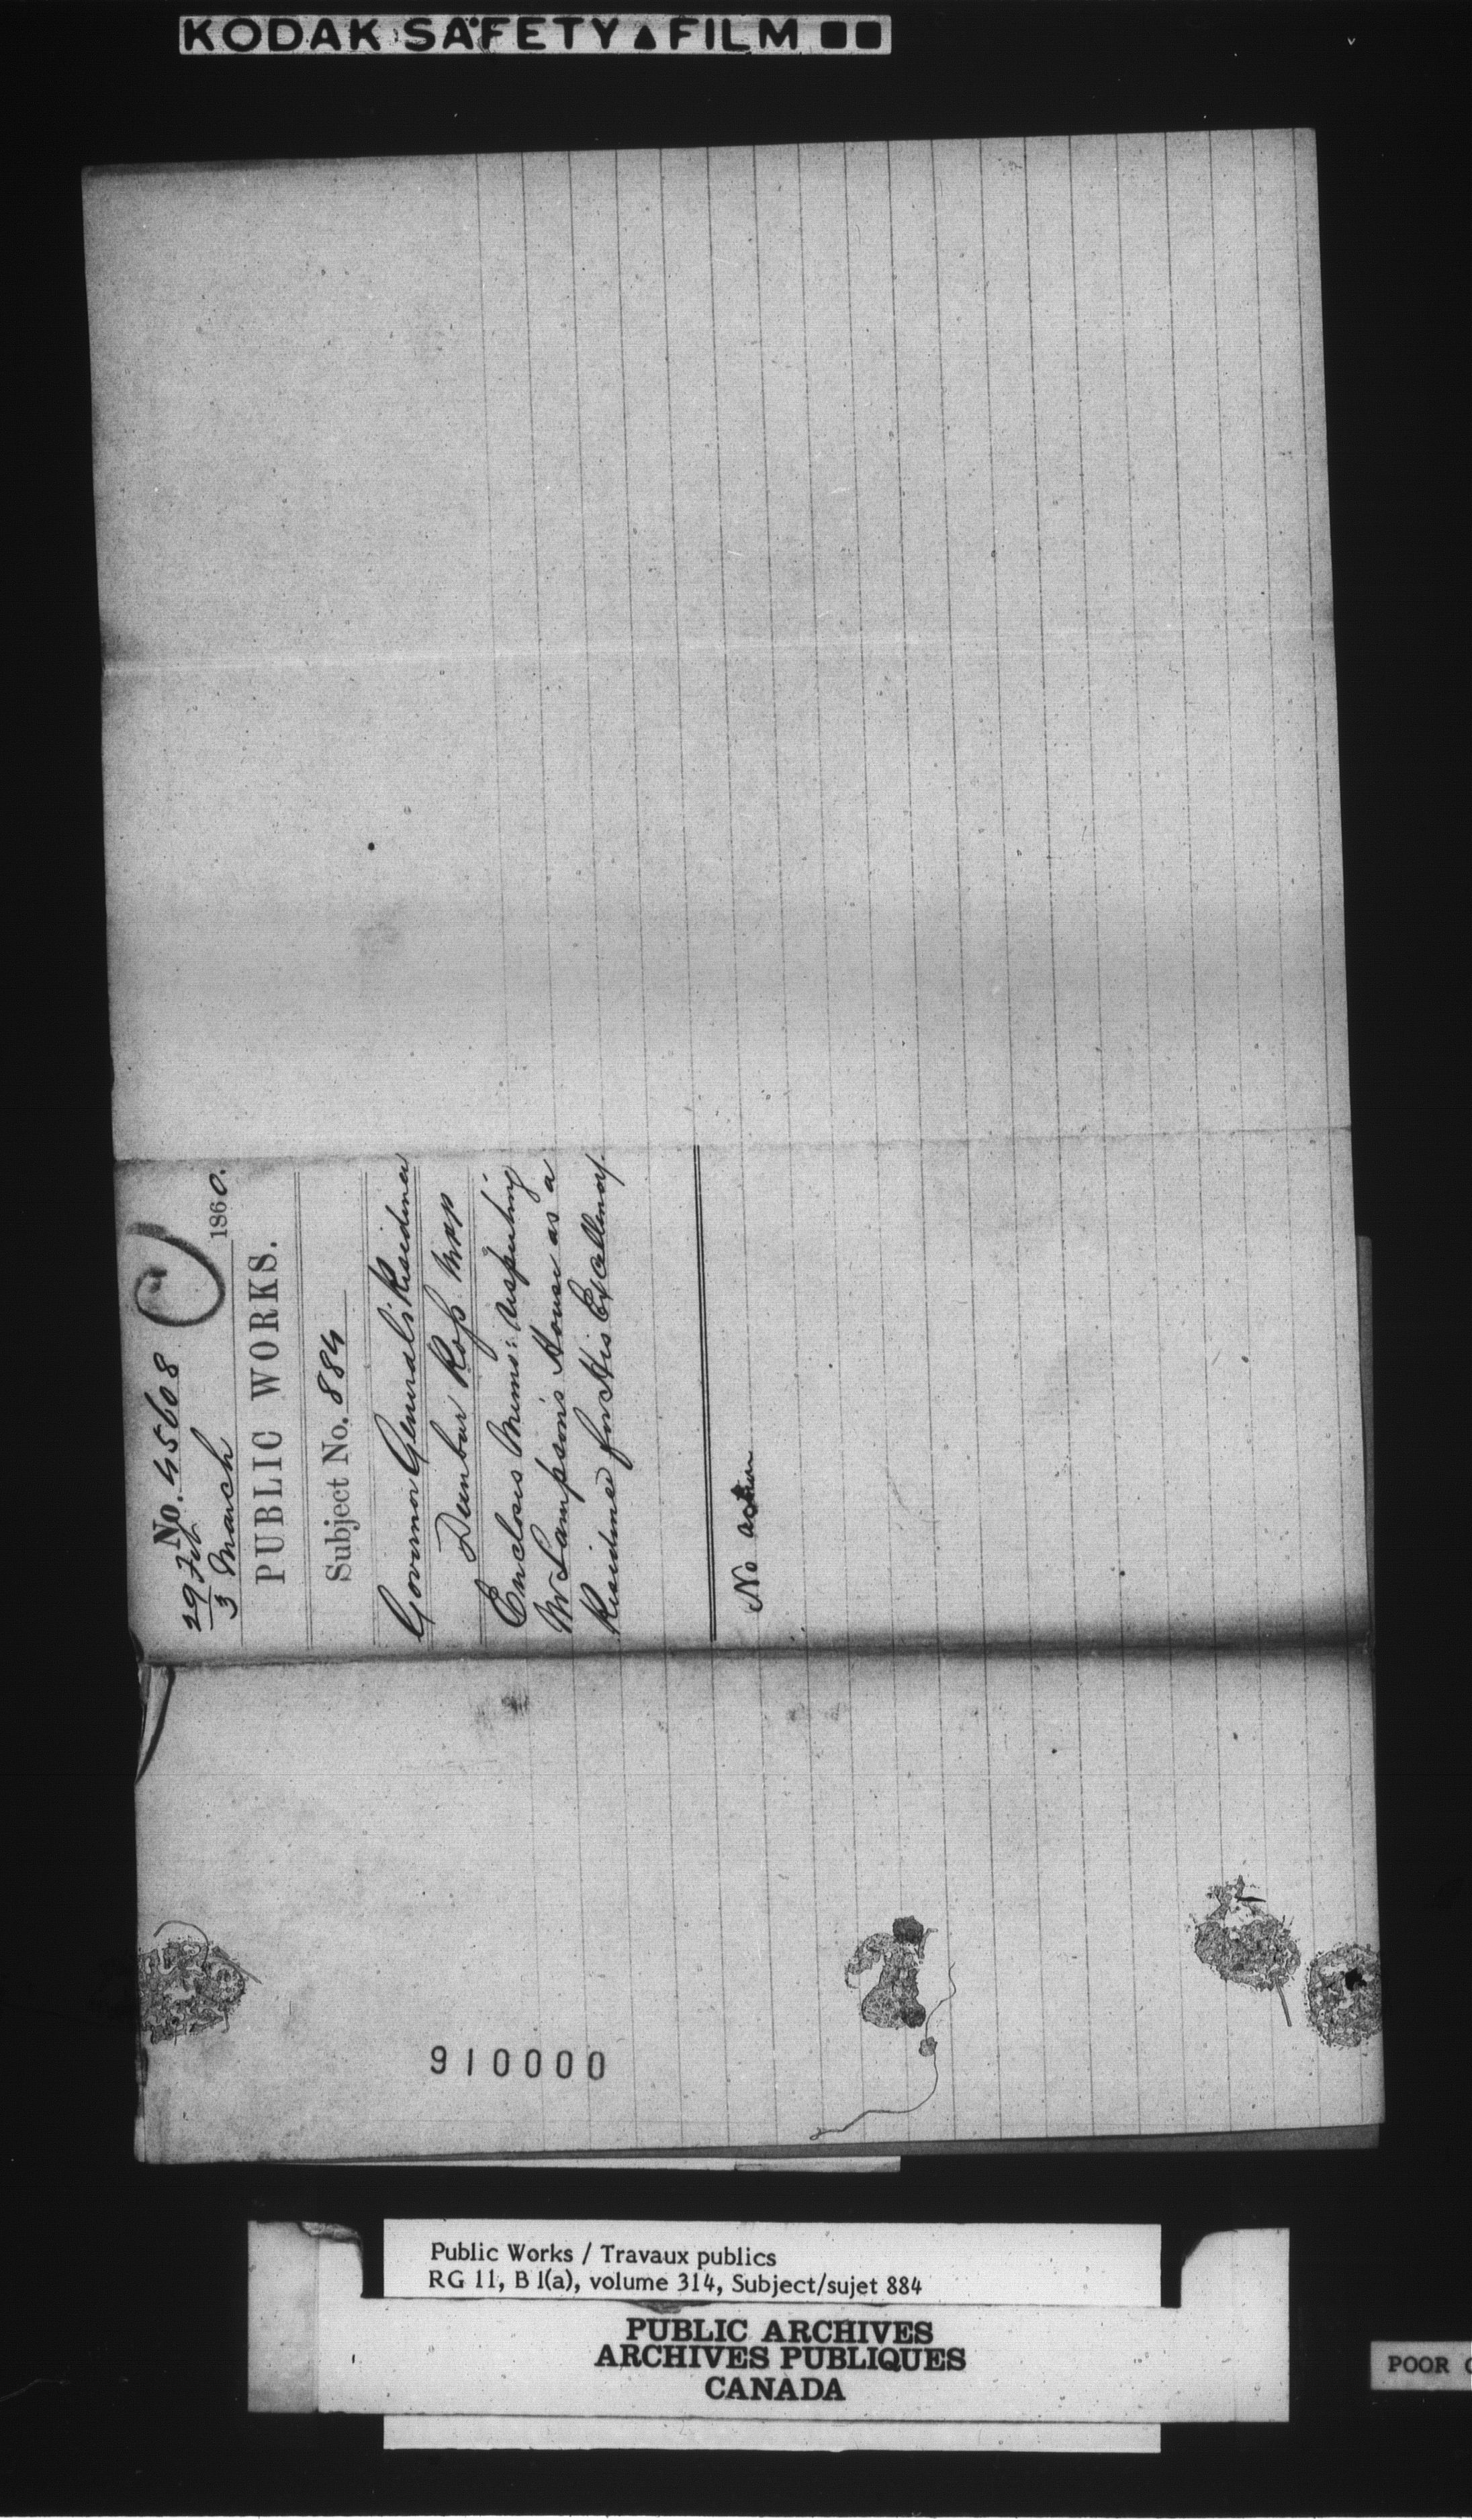 KODAK SAFETY FILM
No. 45608
29 Feb
3 March 1860.
PUBLIC WORKS.
Subject No. 884
Governor General's Residence
Dunbar Ross
Encloses Memo: respecting
Mr Lampson's House as a
Residence for His Excellency.
No action
910000
Public Works / Travaux publics
RG 11, B 1(a), volume 314, Subject/sujet 884
PUBLIC ARCHIVES
ARCHIVES PUBLIQUES
CANADA
POOR